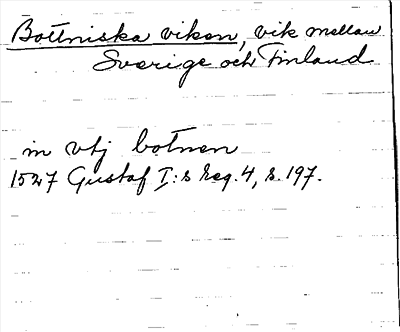 Bottniska viken, vik mellan
Sverige och Finland
in vtj botnen
1527 Gustaf I:s Reg. 4, s. 197.